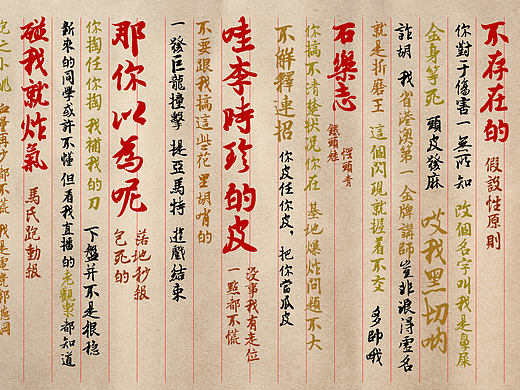 不存在的 假設性原則
你對于傷害一無所知 改個名字叫我是鼻屎
金身等死 頭皮發麻 哎我黑切呐
詐胡 我省港澳第一金牌講師豈非浪得虛名
就是折磨王 這個閃現就握着不交 多帥哦
石樂志 鐵頭娃 愣頭青
你搞不清楚狀况你在 基地爆炸問題不大
不解釋連招 你皮任你皮，把你當瓜皮
哇李時珍的皮 沒事我有走位 一點都不慌
不要跟我搞這些花里胡哨的
一發巨龍撞擊 提亞馬特 遊戲結束
那你以為呢 落地抄報 包死的
你掏任你掏 我補我的刀 下盤并不是很穩
新來的同學或許不懂但看我直播的老觀眾都知道
碰我就炸氣 馬氏跑動報